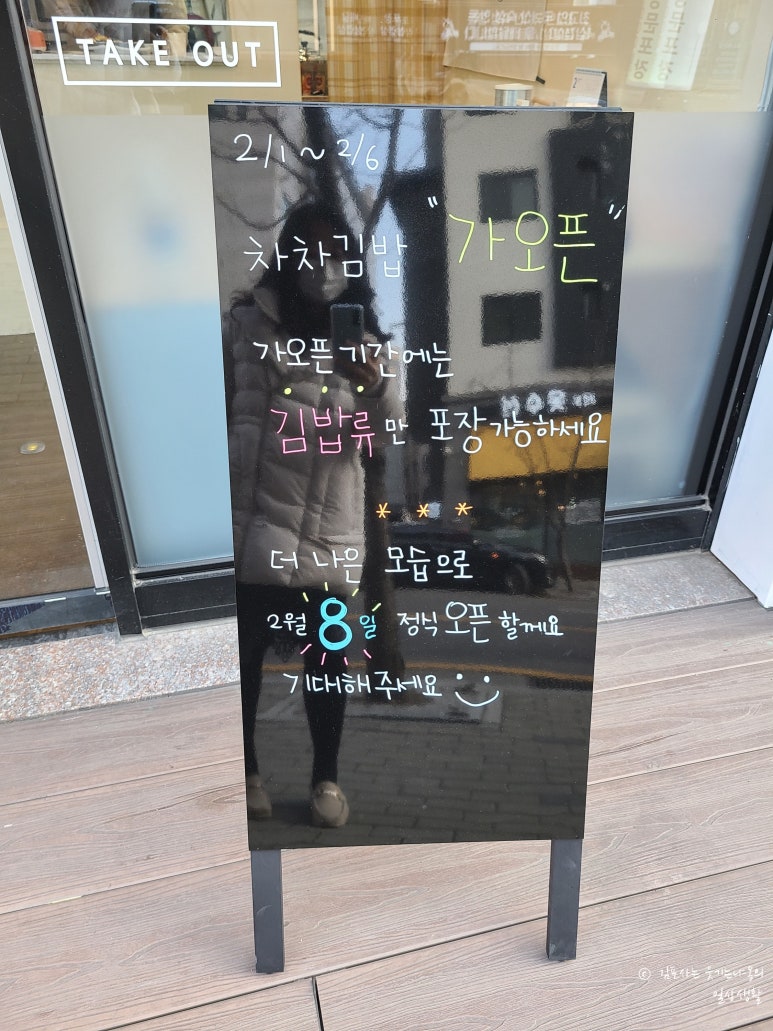 TAKE OUT
2/1 ~ 2/6
차차김밥 "가오픈"
가오픈 기간에는
김밥류만 포장가능하세요
* * *
더 나은 모습으로
2월 8일 정식 오픈 할께요
기대해주세요
일상생활